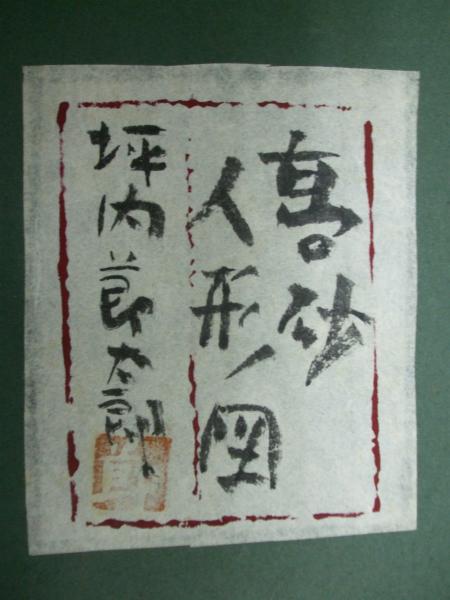 高砂
人形ノ図
坪内節太郎